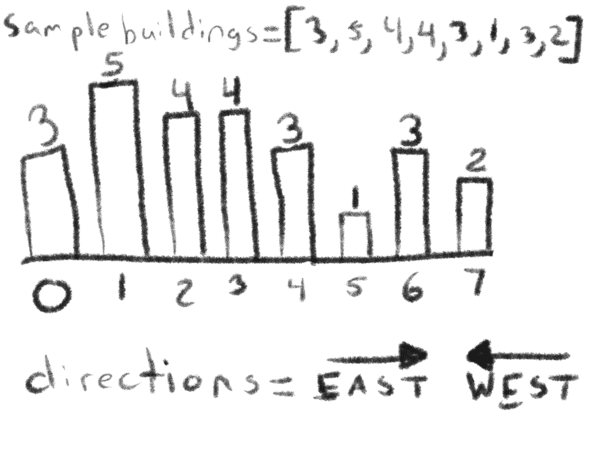 sample buildings=[3,5,4,4,3,1,3,2]
3 5 4 4 3 1 3 2
0 1 2 3 4 5 6 7
directions= EAST WEST